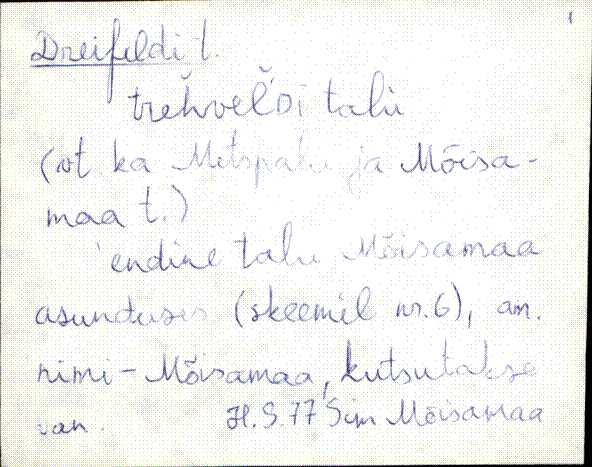 1
Dreifeldi t.
talu
(vt. ka Metspalu ja Mõisa-
maa t.)
endine talu Mõisamaa
asunduses (skeemil nr. 6), am.
nimi - Mõisamaa, kutsutakse
van. H.S. 77 Sim Mõisamaa